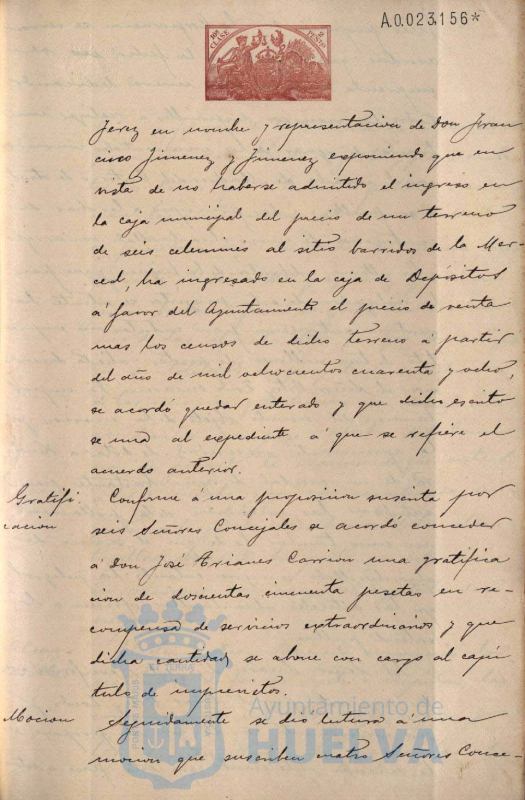 A.0.023,156*
10ª CLASE 2 PESETAS
Jerez en nombre y representacion de Don Fran
cisco Jimenez y Jimenez exponiendo que en
vista de no haberse admitido el ingreso en
la caja municipal del precio de un terreno
de seis celemines al sitio barridos de la Mer
ced, ha ingresado en la caja de Depósitos
á favor del Ayuntamiento el precio de venta
mas los censos de dicho terreno á partir
del año de mil ochocientos cuarenta y ocho,
se acordó quedar enterado y que dicho escrito
se una al expediente á que se refiere el
acuerdo anterior.
Gratifi
cacion
Conforme á una proposicion suscrita por
seis Señores Concejales se acordó conceder
á Don José Arianes Carrion una gratifica
cion de doscientas cincuenta pesetas en re-
compensa de servicios extraordinarios y que
dicha cantidad se abone con cargo al capí
tulo de imprevistos.
Mocion
Seguidamente se dió lectura á una
mocion que suscriben cuatro Señores Conce-
Ayuntamiento de
HUELVA